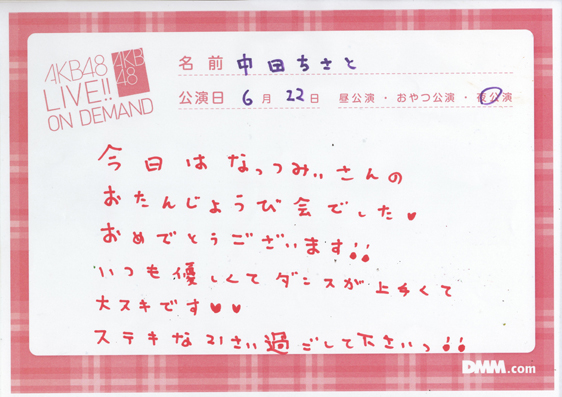 AKB48
LIVE!!
ON DEMAND
AKB
48
名前 中田ちさと
公演日 6月22日 昼公演・おやつ公演・夜公演
今日はなっつみぃさんの
おたんじょうび会でした♥
おめでとうございます!!
いつも優しくてダンスが上手くて
大スキです♥♥
ステキな21さい過ごして下さいっ!!
DMM.com